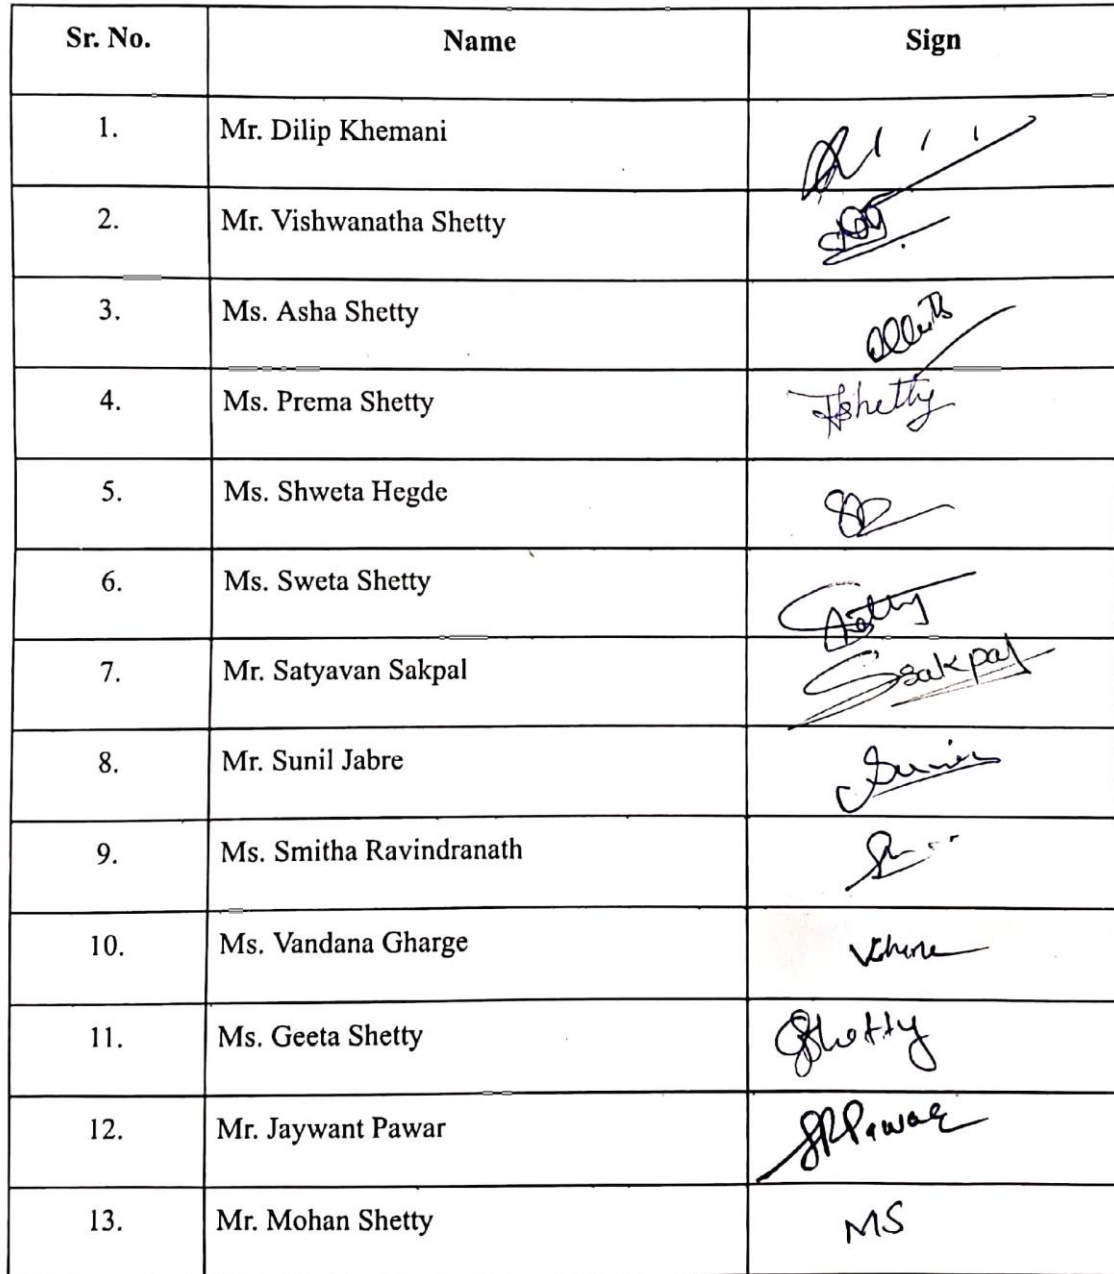 Sr. No. Name Sign
1. Mr. Dilip Khemani
2. Mr. Vishwanatha Shetty
3. Ms. Asha Shetty
4. Ms. Prema Shetty shetty
5. Ms. Shweta Hegde
6. Ms. Sweta Shetty
7. Mr. Satyavan Sakpal Ssakpal
8. Mr. Sunil Jabre
9. Ms. Smitha Ravindranath
10. Ms. Vandana Gharge
11. Ms. Geeta Shetty GShetty
12. Mr. Jaywant Pawar
13. Mr. Mohan Shetty MS